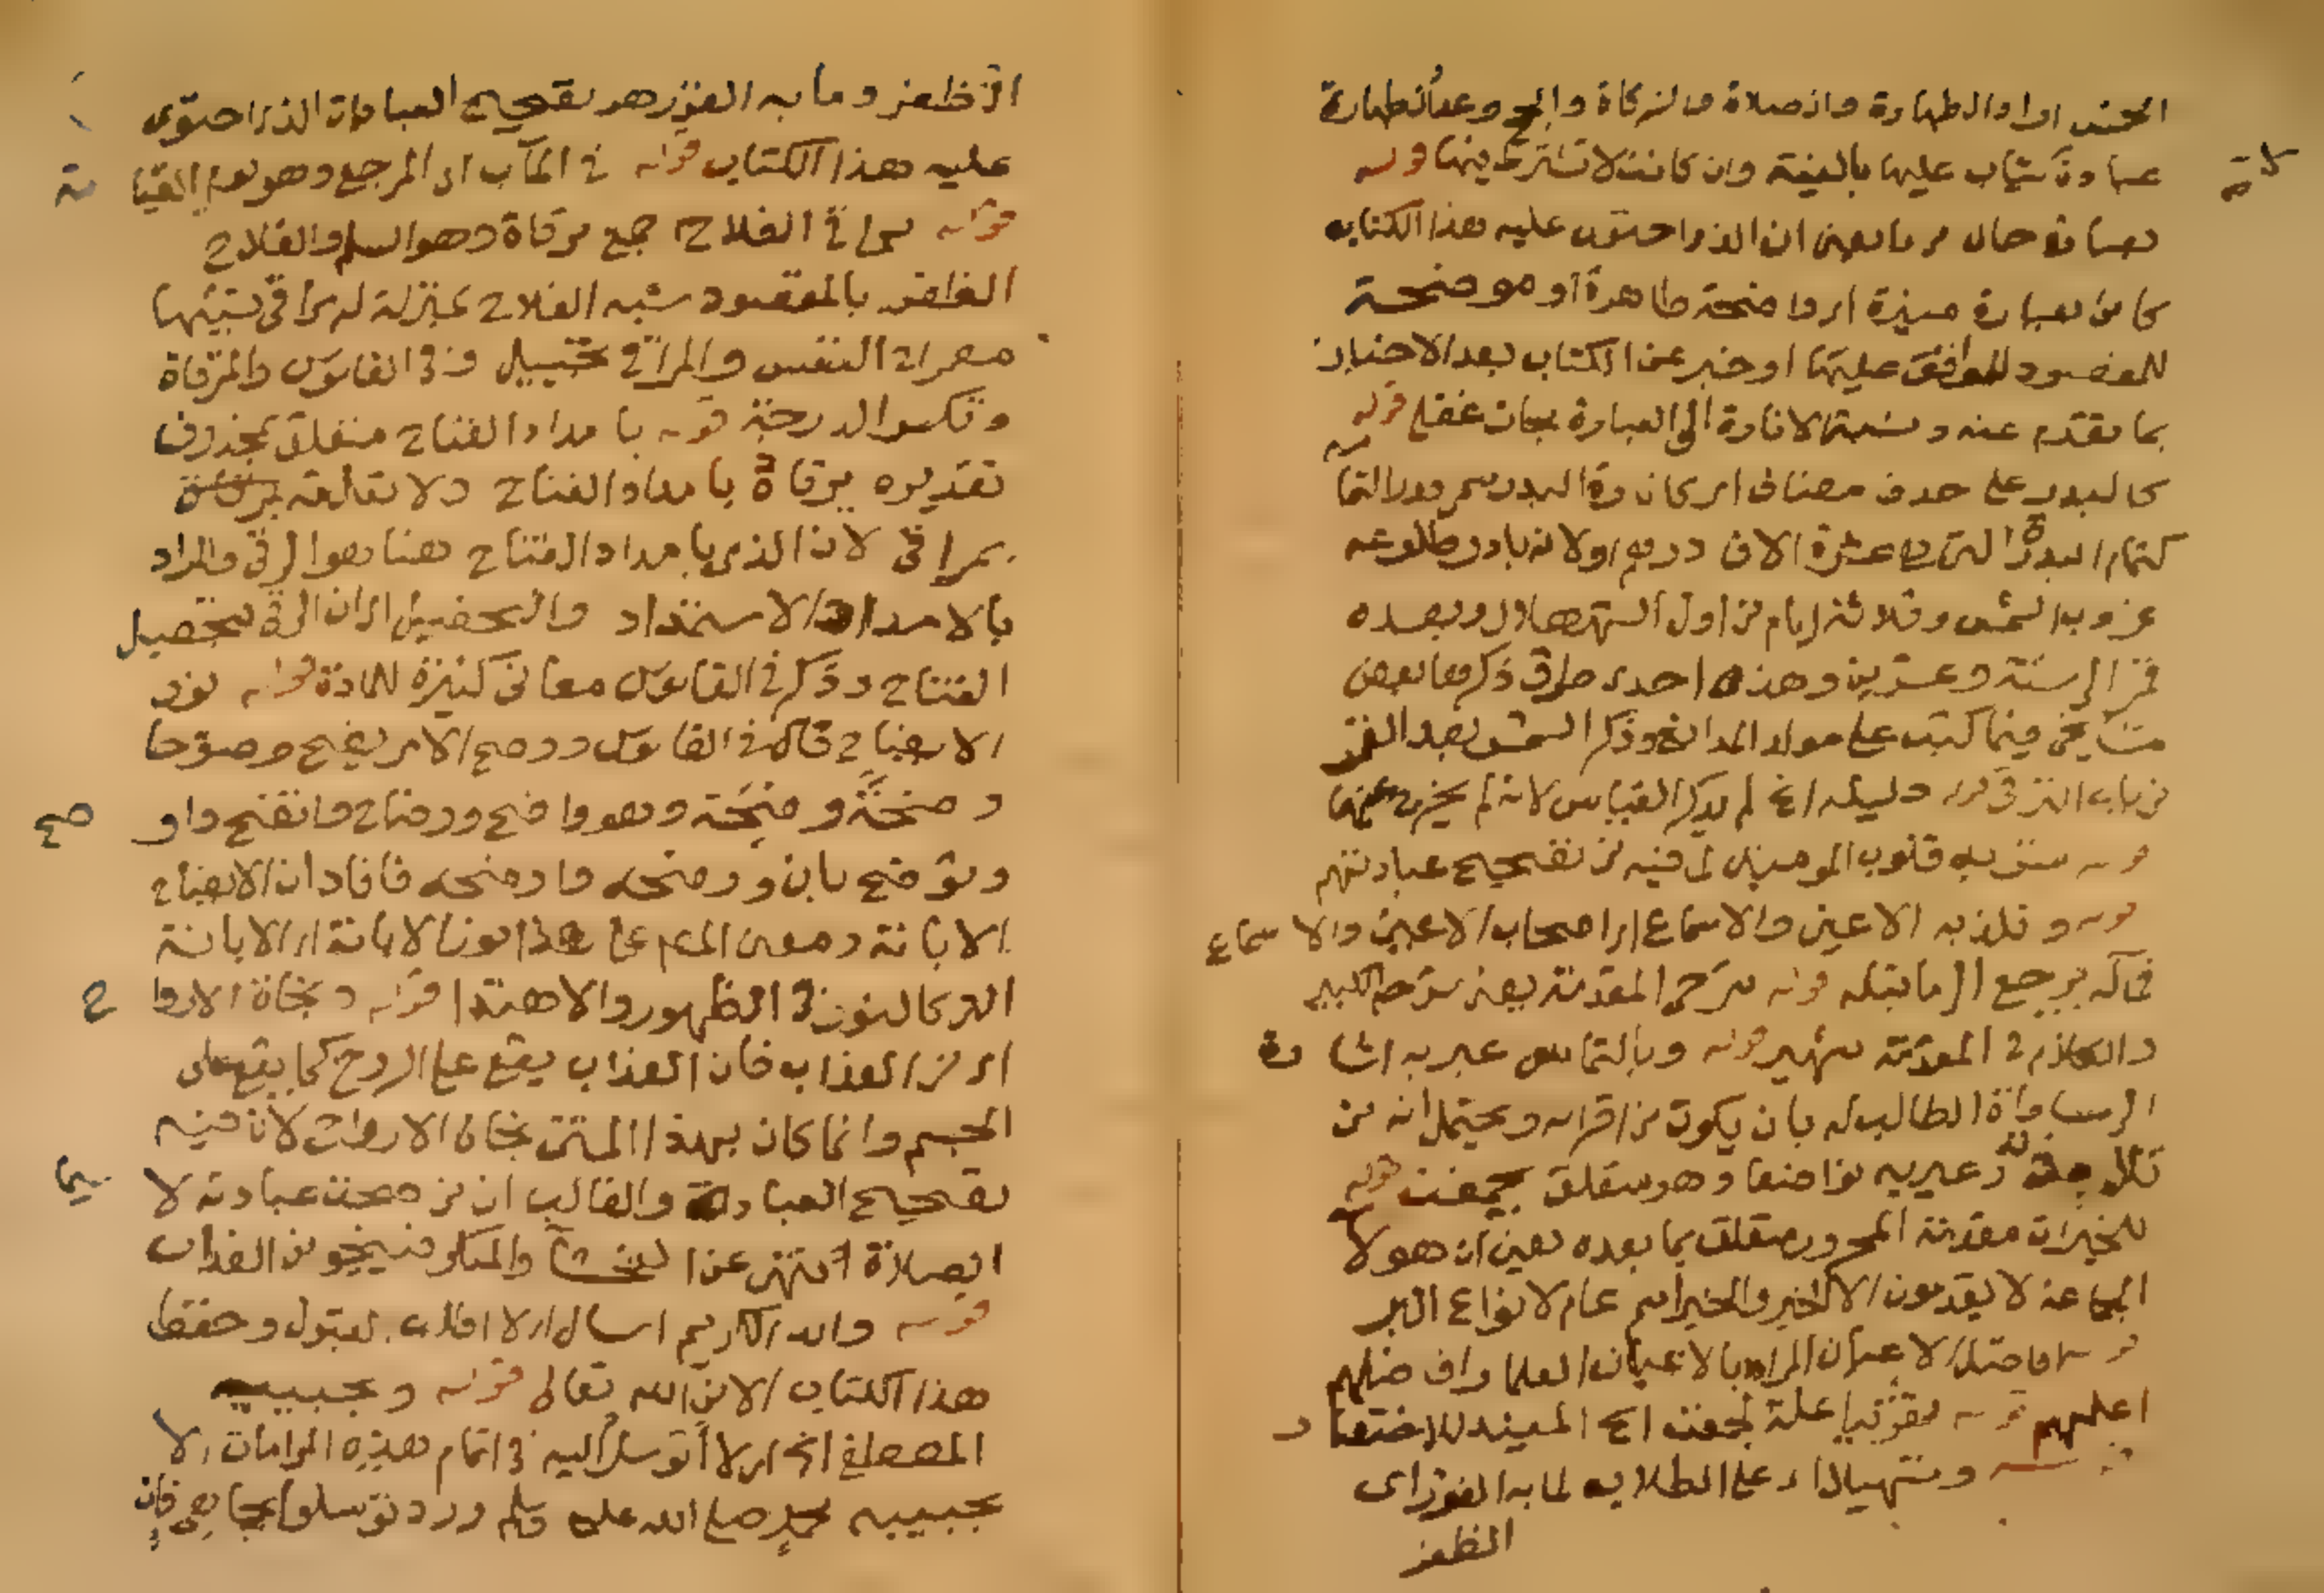 الخمس اى اداء الطهارة والصلاة والزكاة والحج وعد الطهارة
عبادة يثاب عليها بالنية وان كانت لا تشترط فيها قوله
بعبارة حال من ما يعنى ان الذى احتوى عليه هذا الكتاب
كائن بعبارة منيرة اى واضحة ظاهرة او موضحة
للمقصود للواقف عليها او خبر عن الكتاب بعد الاخبار
بما تقدم عنه ونسبة الانارة الى العبارة مجاز عقلى قوله
كالبدر على حذف مضاف اى كانارة البدر سمى بدرا لتمامه
كتمام البدرة التى هى عشرة الاف درهم او لانه يبادر طلوعه
غروب الشمس وثلاثة ايام من اول الشهر هلال وبعده
قمر الى ستة وعشرين وهذه احدى طرق ذكرها بعض
مشايخى فيما كتب على مولد المدابغى وذكر الشمس بعد القمر
من باب الترقى قوله دليله الخ لم يذكر القياس لانه لم يخرج عنهما
قوله تسر به قلوب المومنين لما فيه من تصحيح عبادتهم
قوله وتلذ به الاعين والاسماع اى اصحاب الاعين والاسماع
فمآله يرجع الى ما قبله قوله شرحى المقدمة يعنى شرحه الكبير
والكلام فى المقدمة شهير قوله وبالتماس عبر به اشارة
الى مساواة الطالب له بان يكون من اقرانه ويحتمل انه من
تلامذته وعبر به تواضعا وهو متعلق بجمعت قوله
للخيرات مقدمة المجرور متعلق بما بعده يعنى ان هولاء
الجماعة لا يقدمون الا الخير والخير اسم عام لانواع البر
قوله افاضل الاعيان المراد بالاعيان العلما وافضلهم
اعلمهم قوله تقريبا علة لجمعت الخ المفيد للاختصار
قوله وتسهيلا اى على الطلاب لما به الفوز اى
الظفر
اى الظفر وما به الفوز هو تصحيح العبادات الذى احتوى
عليه هذا الكتاب قوله فى المآب اى المرجع وهو يوم القيامة
قوله مراقى الفلاح جمع مرقاة وهو السلم والفلاح
الظفر بالمقصود شبه الفلاح بمنزلة له مراقى تشبيها
مضمرا فى النفس والمراقى تخييل وفى القاموس والمرقاة
وتكسر الدرجة قوله بامداد الفتاح متعلق بمحذوف
تقديره مرقاة بامداد الفتاح ولا تعلقه
بمراقى لان الذى بامداد الفتاح هنا هو الرقى والمراد
بالامداد الاستمداد والتحصيل اى ان الرقى بتحصيل
الفتاح وذكر فى القاموس معانى كثيرة للمادة قوله نور
الايضاح قال فى القاموس وضح الامر يضح وضوحا
وضحة وضحة وهو واضح ووضاح واتضح واو
وتوضح بان ووضحه واوضحه فافاد ان الايضاح
الابانة ومعنى العلم على هذا نور الابانة اى الابانة
التى كالنور فى الظهور والاهتدا قوله ونجاة الارواح
اى من العذاب فان العذاب يقع على الروح كما يقع على
الجسم وانما كان بهذا المتن نجاة الارواح لان فيه
تصحيح العبادة والغالب ان من صحت عبادته لا سيما
الصلاة انتهى عن الفحشا والمنكر فينجو من العذاب
قوله والله الكريم اسال اى لا اطلب قبول وحفظ
هذا الكتاب الا من الله تعالى قوله وبحبيبه
المصطفى الخ اى لا اتوسل اليه فى اتمام هذه المرامات الا
بحبيبه محمد صلى الله عليه وسلم وورد توسلوا بجاهى فان